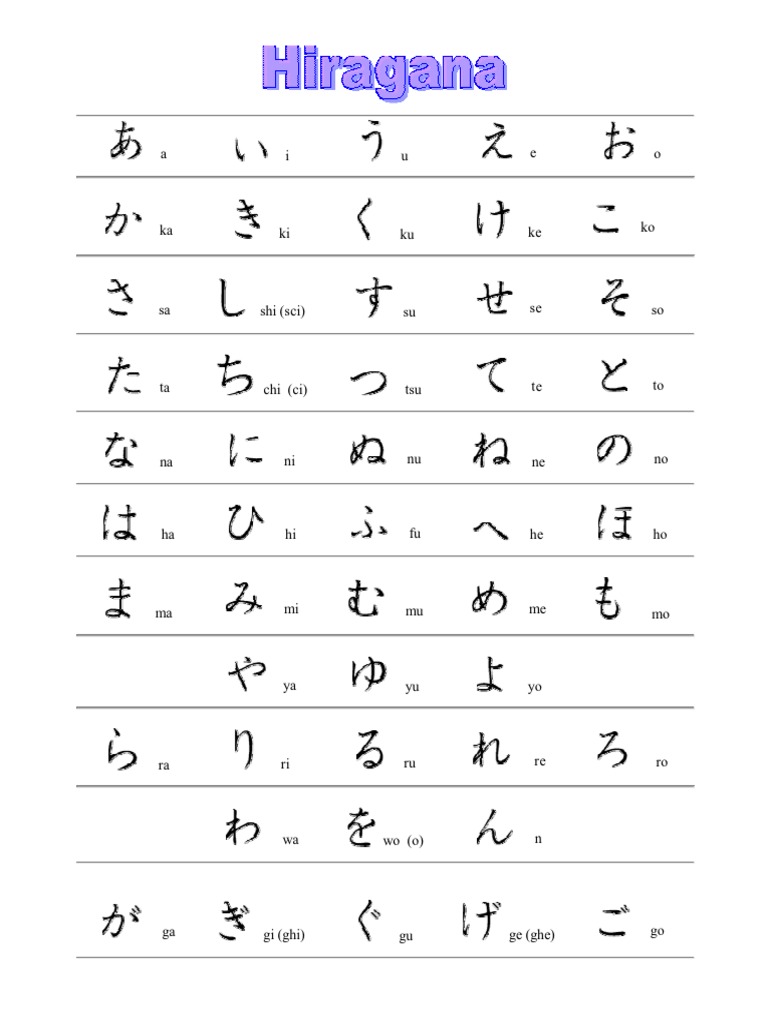 Hiragana
あ a い i う u え e お o
か ka き ki く ku け ke こ ko
さ sa し shi (sci) す su せ se そ so
た ta ち chi (ci) つ tsu て te と to
な na に ni ぬ nu ね ne の no
は ha ひ hi ふ fu へ he ほ ho
ま ma み mi む mu め me も mo
や ya ゆ yu よ yo
ら ra り ri る ru れ re ろ ro
わ wa を wo (o) ん n
が ga ぎ gi (ghi) ぐ gu げ ge (ghe) ご go